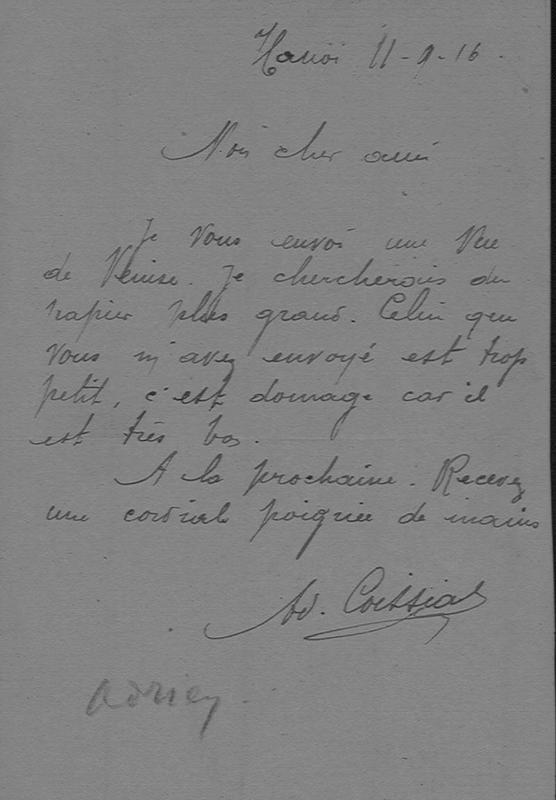 Hanoï 11-9-16.
Mon cher ami
Je vous envoi une Vue
de Venise. Je chercherais du
papier plus grand. Celui que
vous m'avez envoyé est trop
petit, c'est domage car il
est très bon.
A la prochaine. Recevez
une cordiale poignée de mains
Ad. Coissial
Adrien